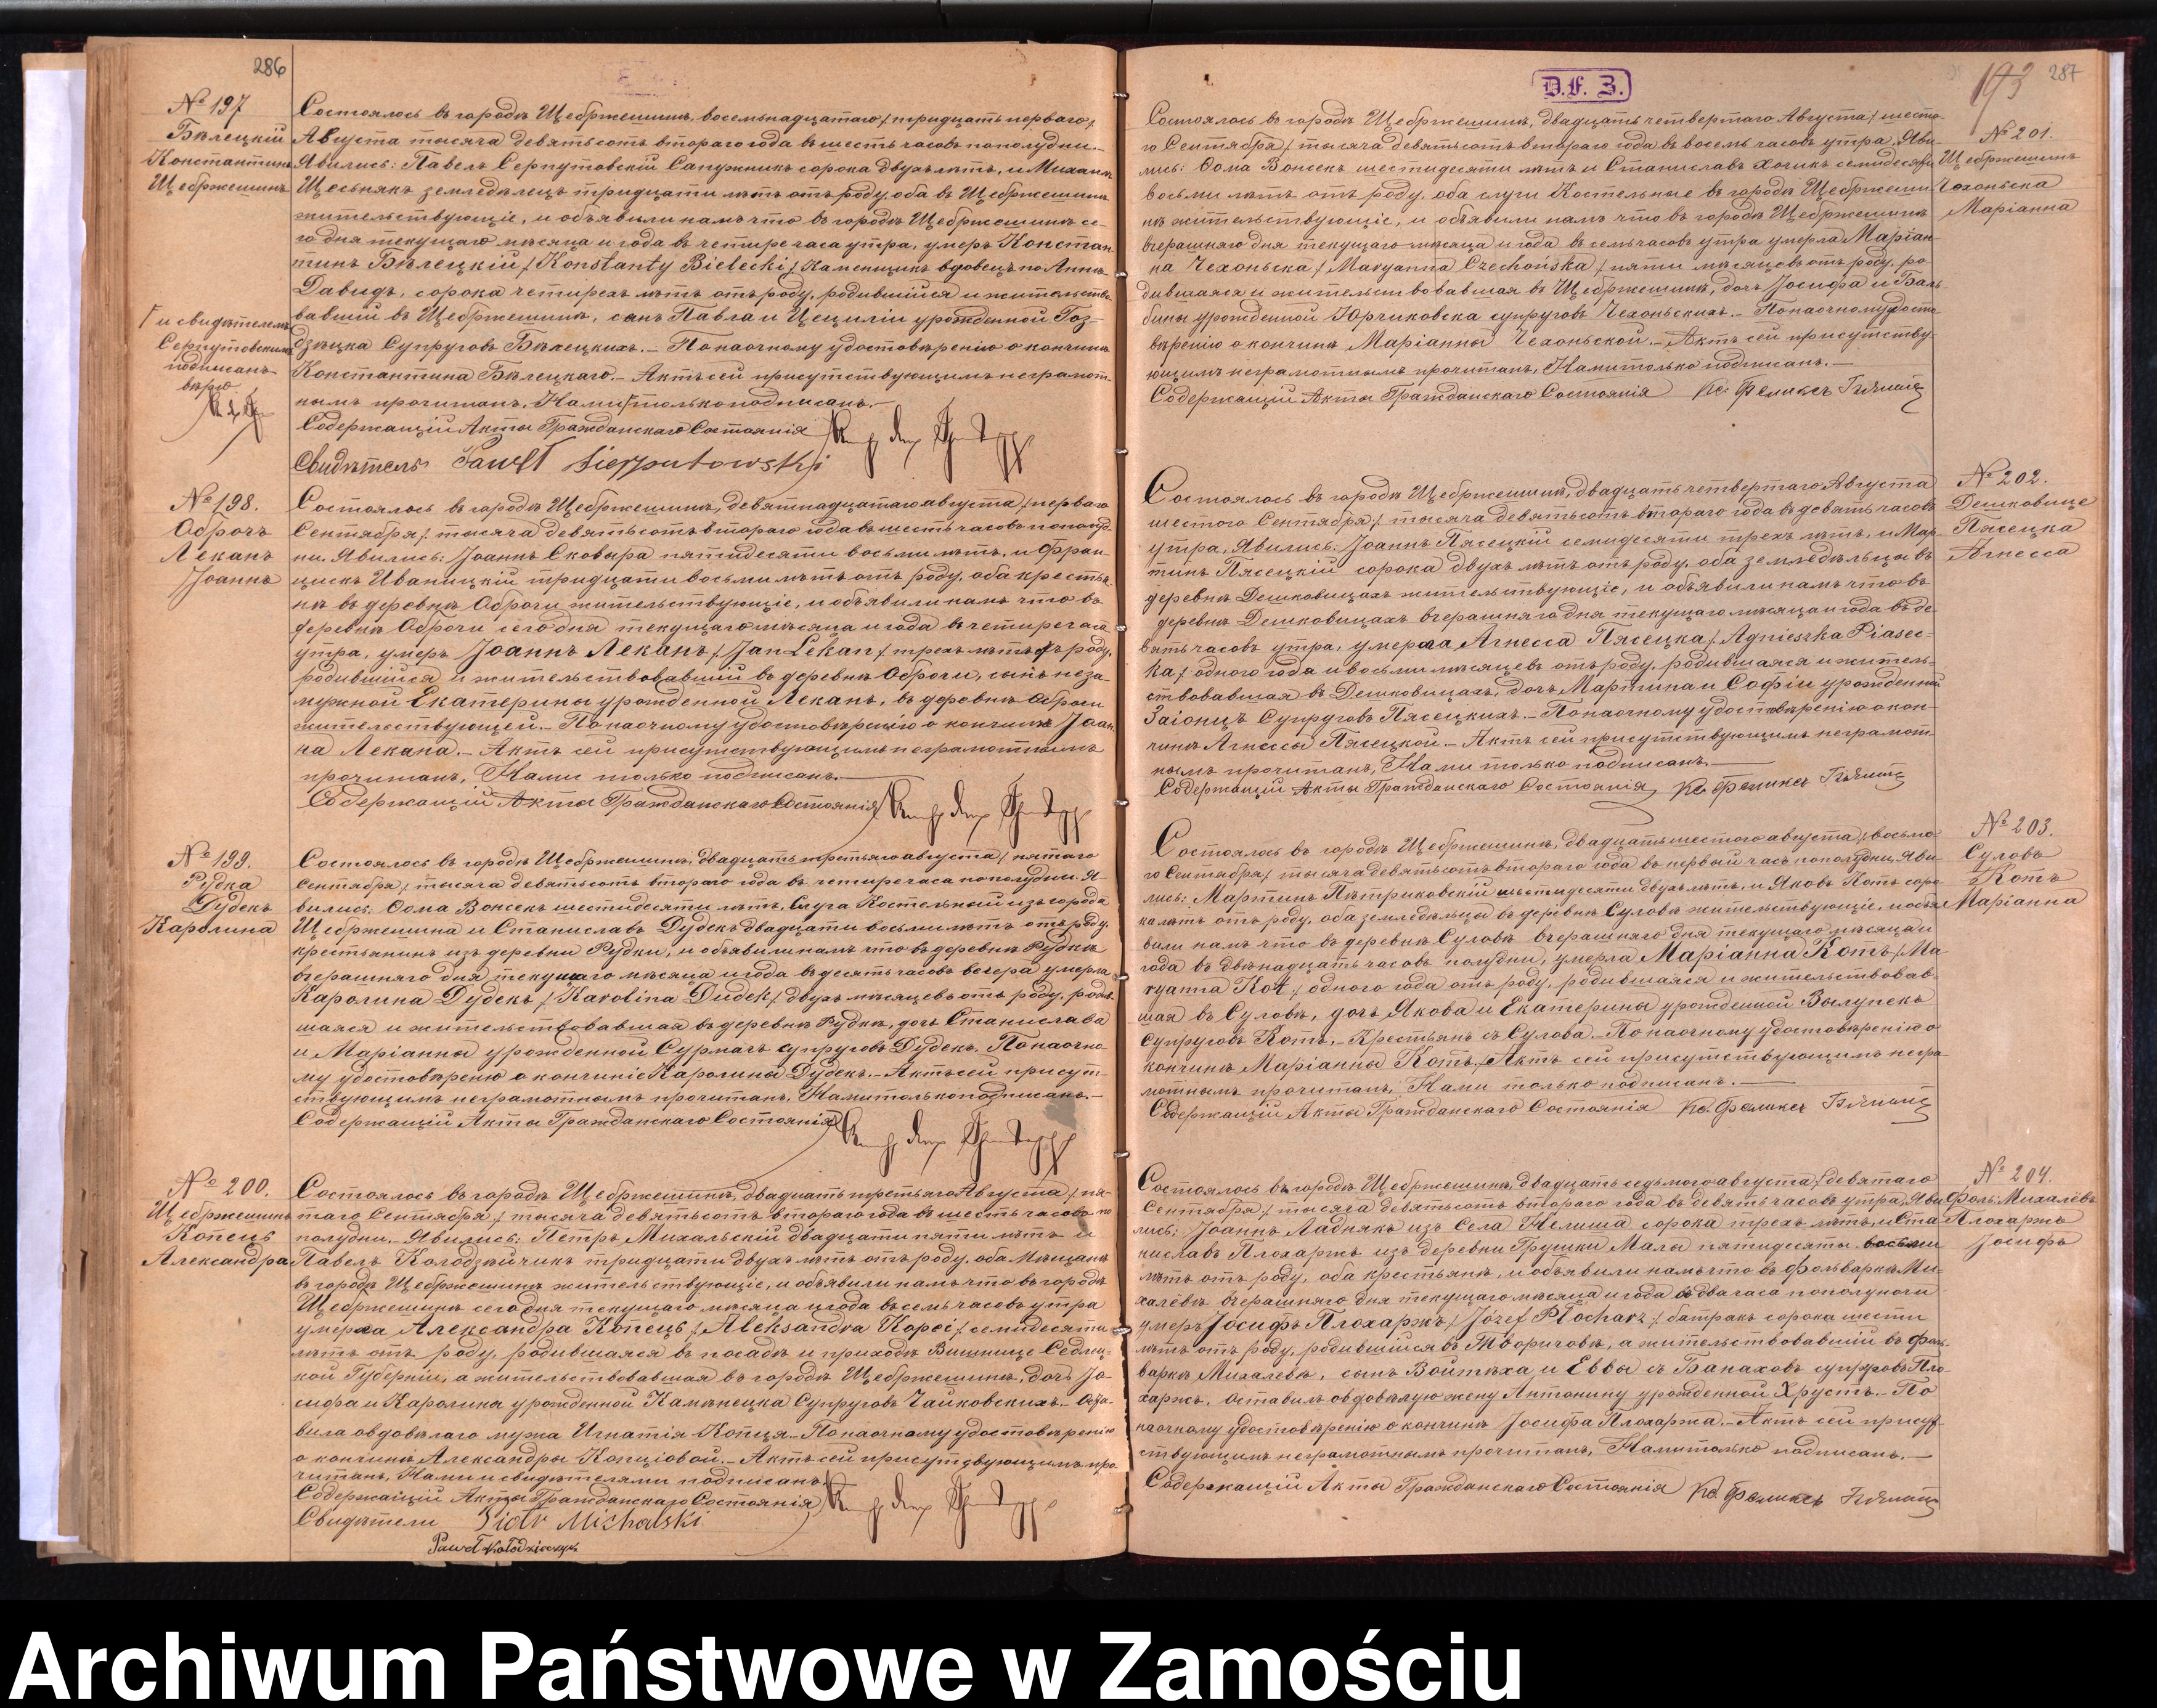 286
№ 197
Бѣлецкій
Константинъ
Щебржешинъ
Состоялось въ городѣ Щебржешинѣ, восемьнадцатаго / тридцать перваго /
Августа тысяча девятьсотъ втораго года въ шесть часовъ пополудни.
Явились: Павелъ Серпутовскій Сапужникъ сорока двухъ лѣтъ, и Михаилъ
Щесьнякъ земледѣлецъ тридцати лѣтъ отъ роду, оба въ Щебржешинѣ
жительствующіе, и объявили намъ что въ городѣ Щебржешинѣ се-
го дня текущаго мѣсяца и года въ четыре часа утра, умеръ Констан
тинъ Бѣлецкій / Konstanty Bielecki / Каменщикъ вдовецъ по Аннѣ
Давидъ, сорока четырехъ лѣтъ отъ роду, родившійся и жительство
вавшій въ Щебржешинѣ, сынъ Павла и Цециліи урожденной Гоз-
дзѣцка Супруговъ Бѣлецкихъ. – По наочному удостовѣренію о кончинѣ
Константина Бѣлецкаго. – Актъ сей присутствующимъ неграмот-
нымъ прочитанъ, Нами Г только подписанъ. –
Г и свидѣтелемъ
Серпутовскимъ
подписанъ
вѣрно
Содержащій Акты Гражданскаго Состоянія
Свидѣтель Paweł Sierputowski
№ 198.
Оброчь
Леканъ
Іоаннъ
Состоялось въ городѣ Щебржешинѣ, девятнадцатаго августа / перваго
Сентября / тысяча девятьсотъ втораго года въ шесть часовъ пополуд-
ни. Явились: Іоаннъ Сковыра пятидесяти восьми лѣтъ, и Фран-
цискъ Иваницкій тридцати восьми лѣтъ отъ роду, оба крестья-
не въ деревнѣ Оброчи жительствующіе, и объявили намъ что въ
деревнѣ Оброчи сего дня текущаго мѣсяца и года въ четыре часа
утра, умеръ Іоаннъ Леканъ / Jan Lekan / трехъ лѣтъ отъ роду,
родившійся и жительствовавшій въ деревнѣ Оброчи, сынъ неза-
мужной Екатерины урожденной Леканъ, въ деревнѣ Оброчи
жительствующей. – По наочному удостовѣренію о кончинѣ Іоан
на Лекана. – Актъ сей присутствующимъ неграмотнымъ
прочитанъ, Нами только подписанъ. –
Содержащій Акты Гражданскаго Состоянія
№ 199.
Рудка
Дудекъ
Каролина
Состоялось въ городѣ Щебржешинѣ, двадцать третьяго августа / пятаго
Сентября / тысяча девятьсотъ втораго года въ четыре часа пополудни. Я-
вились: Ѳома Вонсекъ шестидесяти лѣтъ, Слуга Костельный изъ города
Щебржешина и Станиславъ Дудекъ двадцати восьми лѣтъ отъ роду,
крестьянинъ изъ деревни Рудки, и объявили намъ что въ деревнѣ Рудкѣ
вчерашняго дня текущаго мѣсяца и года въ десять часовъ вечера умерла
Каролина Дудекъ / Karolina Dudek / двухъ мѣсяцевъ отъ роду, родив-
шаяся и жительствовавшая въ деревнѣ Рудкѣ, дочь Станислава
и Маріанны урожденной Сурмачъ супруговъ Дудекъ. По наочно-
му удостовѣренію о кончинѣ Каролины Дудекъ. – Актъ сей присут-
ствующимъ неграмотнымъ прочитанъ, Нами только подписанъ. –
Содержащій Акты Гражданскаго Состоянія
№ 200.
Щебржешинъ
Копець
Александра
Состоялось въ городѣ Щебржешинѣ, двадцать третьяго Августа / пя-
таго Сентября / тысяча девятьсотъ втораго года въ шесть часовъ по
полудни. – Явились: Петръ Михальскій двадцати пяти лѣтъ и
Павелъ Колодзѣйчикъ тридцати двухъ лѣтъ отъ роду, оба Мѣщане
въ городѣ Щебржешинѣ жительствующіе, и объявили намъ что въ городѣ
Щебржешинѣ сего дня текущаго мѣсяца и года въ семь часовъ утра
умерла Александра Копець / Aleksandra Kopeć / семидесяти
лѣтъ отъ роду, родившаяся въ посадѣ и приходѣ Вишнице Сѣдлец-
кой Губерніи, а жительствовавшая въ городѣ Щебржешинѣ, дочь Іо-
сифа и Каролины урожденной Каменецка Супруговъ Чайковскихъ. – Оста-
вила овдовѣлаго мужа Игнатія Копця. – По наочному удостовѣренію
о кончинѣ Александры Копціовой. – Актъ сей присутствующимъ про
читанъ, Нами и свидѣтелями подписанъ.
Содержащій Акты Гражданскаго Состоянія
Свидѣтели Piotr Michalski
Paweł Kołodziejczyk
D.F. 3.
193
287
№ 201.
Щебржешинъ
Чехоньска
Маріанна
Состоялось въ городѣ Щебржешинѣ, двадцать четвертаго Августа / шеста-
го Сентября / тысяча девятьсотъ втораго года въ восемь часовъ утра. Яви-
лись: Ѳома Вонсекъ шестидесяти лѣтъ и Станиславъ Хочикъ семидесяти
восьми лѣтъ отъ роду, оба слуги Костельные въ городѣ Щебржеши
нѣ жительствующіе, и объявили намъ что въ городѣ Щебржешинѣ
вчерашняго дня текущаго мѣсяца и года въ семь часовъ утра умерла Маріан-
на Чехоньска / Maryanna Czechońska / пяти мѣсяцевъ отъ роду, ро-
дившаяся и жительствовавшая въ Щебржешинѣ, дочь Іосифа и Баль-
бины урожденной Юрчиковска супруговъ Чехоньскихъ. – По наочному удосто
вѣренію о кончинѣ Маріанны Чехоньской. – Актъ сей присутству-
ющимъ неграмотнымъ прочитанъ, Нами только подписанъ. –
Содержащій Акты Гражданскаго Состоянія Кс. Феликсъ
№ 202.
Дешковице
Пясецка
Агнесса
Состоялось въ городѣ Щебржешинѣ, двадцать четвертаго Августа
шестого Сентября / тысяча девятьсотъ втораго года въ девять часовъ
утра, Явились: Іоаннъ Пясецкій семидесяти трехъ лѣтъ, и Мар
тинъ Пясецкій сорока двухъ лѣтъ отъ роду, оба земледѣльцы въ
деревнѣ Дешковицахъ жительствующіе, и объявили намъ что въ
деревнѣ Дешковицахъ вчерашняго дня текущаго мѣсяца и года въ де
вять часовъ утра, умерла Агнесса Пясецка / Agnieszka Piasec-
ka / одного года и восьми мѣсяцевъ отъ роду, родившаяся и житель-
ствовавшая въ Дешковицахъ, дочь Мартина и Софіи урожденной
Заіонцъ Супруговъ Пясецкихъ. – По наочному удостовѣренію о кон-
чинѣ Агнессы Пясецкой. – Актъ сей присутствующимъ неграмот-
нымъ прочитанъ, Нами только подписанъ. –
Содержащій Акты Гражданскаго Состоянія Кс. Феликсъ
№ 203.
Суловъ
Котъ
Маріанна
Состоялось въ городѣ Щебржешинѣ, двадцать шестого августа / восьмо-
го Сентября / тысяча девятьсотъ втораго года въ первый часъ пополудни, Яви-
лись: Мартинъ Пѣтриковскій шестидесяти двухъ лѣтъ, и Яковъ Котъ соро
ка лѣтъ отъ роду, оба земледѣльцы въ деревнѣ Суловѣ жительствующіе, и объя
вили намъ что въ деревнѣ Суловѣ вчерашняго дня текущаго мѣсяца и
года въ двѣнадцать часовъ полудни, умерла Маріанна Котъ / Ma
ryanna Kot / одного года отъ роду, родившаяся и жительствовав-
шая въ Суловѣ, дочь Якова и Екатерины урожденной Вылупекъ
Супруговъ Котъ, – Крестьянъ съ Сулова. – По наочному удостовѣренію о
кончинѣ Маріанны Котъ. Актъ сей присутствующимъ негра-
мотнымъ прочитанъ, Нами только подписанъ. –
Содержащій Акты Гражданскаго Состоянія Кс. Феликсъ
№ 204.
Фоль. Михалёвъ
Плохаржъ
Іосифъ
Состоялось въ городѣ Щебржешинѣ, двадцать седьмого августа / девятаго
Сентября / тысяча девятьсотъ втораго года въ девять часовъ утра, Яви
лись: Іоаннъ Ладнякъ изъ Села Нелиша сорока трехъ лѣтъ, и Ста
ниславъ Плохаржъ изъ деревни Грушки Малы пятидесяти восьми
лѣтъ отъ роду, оба крестьяне, и объявили намъ что въ фольваркѣ Ми-
халёвѣ вчерашняго дня текущаго мѣсяца и года въ два часа пополуночи
умеръ Іосифъ Плохаржъ / Józef Płocharz / батракъ сорока шести
лѣтъ отъ роду, родившійся въ Творичовѣ, а жительствовавшій въ фоль-
варкѣ Михалевѣ, сынъ Войтѣха и Еввы съ Банаховъ супруговъ Пло-
харжъ. Оставилъ овдовѣлую жену Антонину урожденной Хрусть. – По
наочному удостовѣренію о кончинѣ Іосифа Плохаржа. – Актъ сей присут-
ствующимъ неграмотнымъ прочитанъ, Нами только подписанъ. –
Содержащій Акты Гражданскаго Состоянія Кс. Феликсъ
Archiwum Państwowe w Zamościu